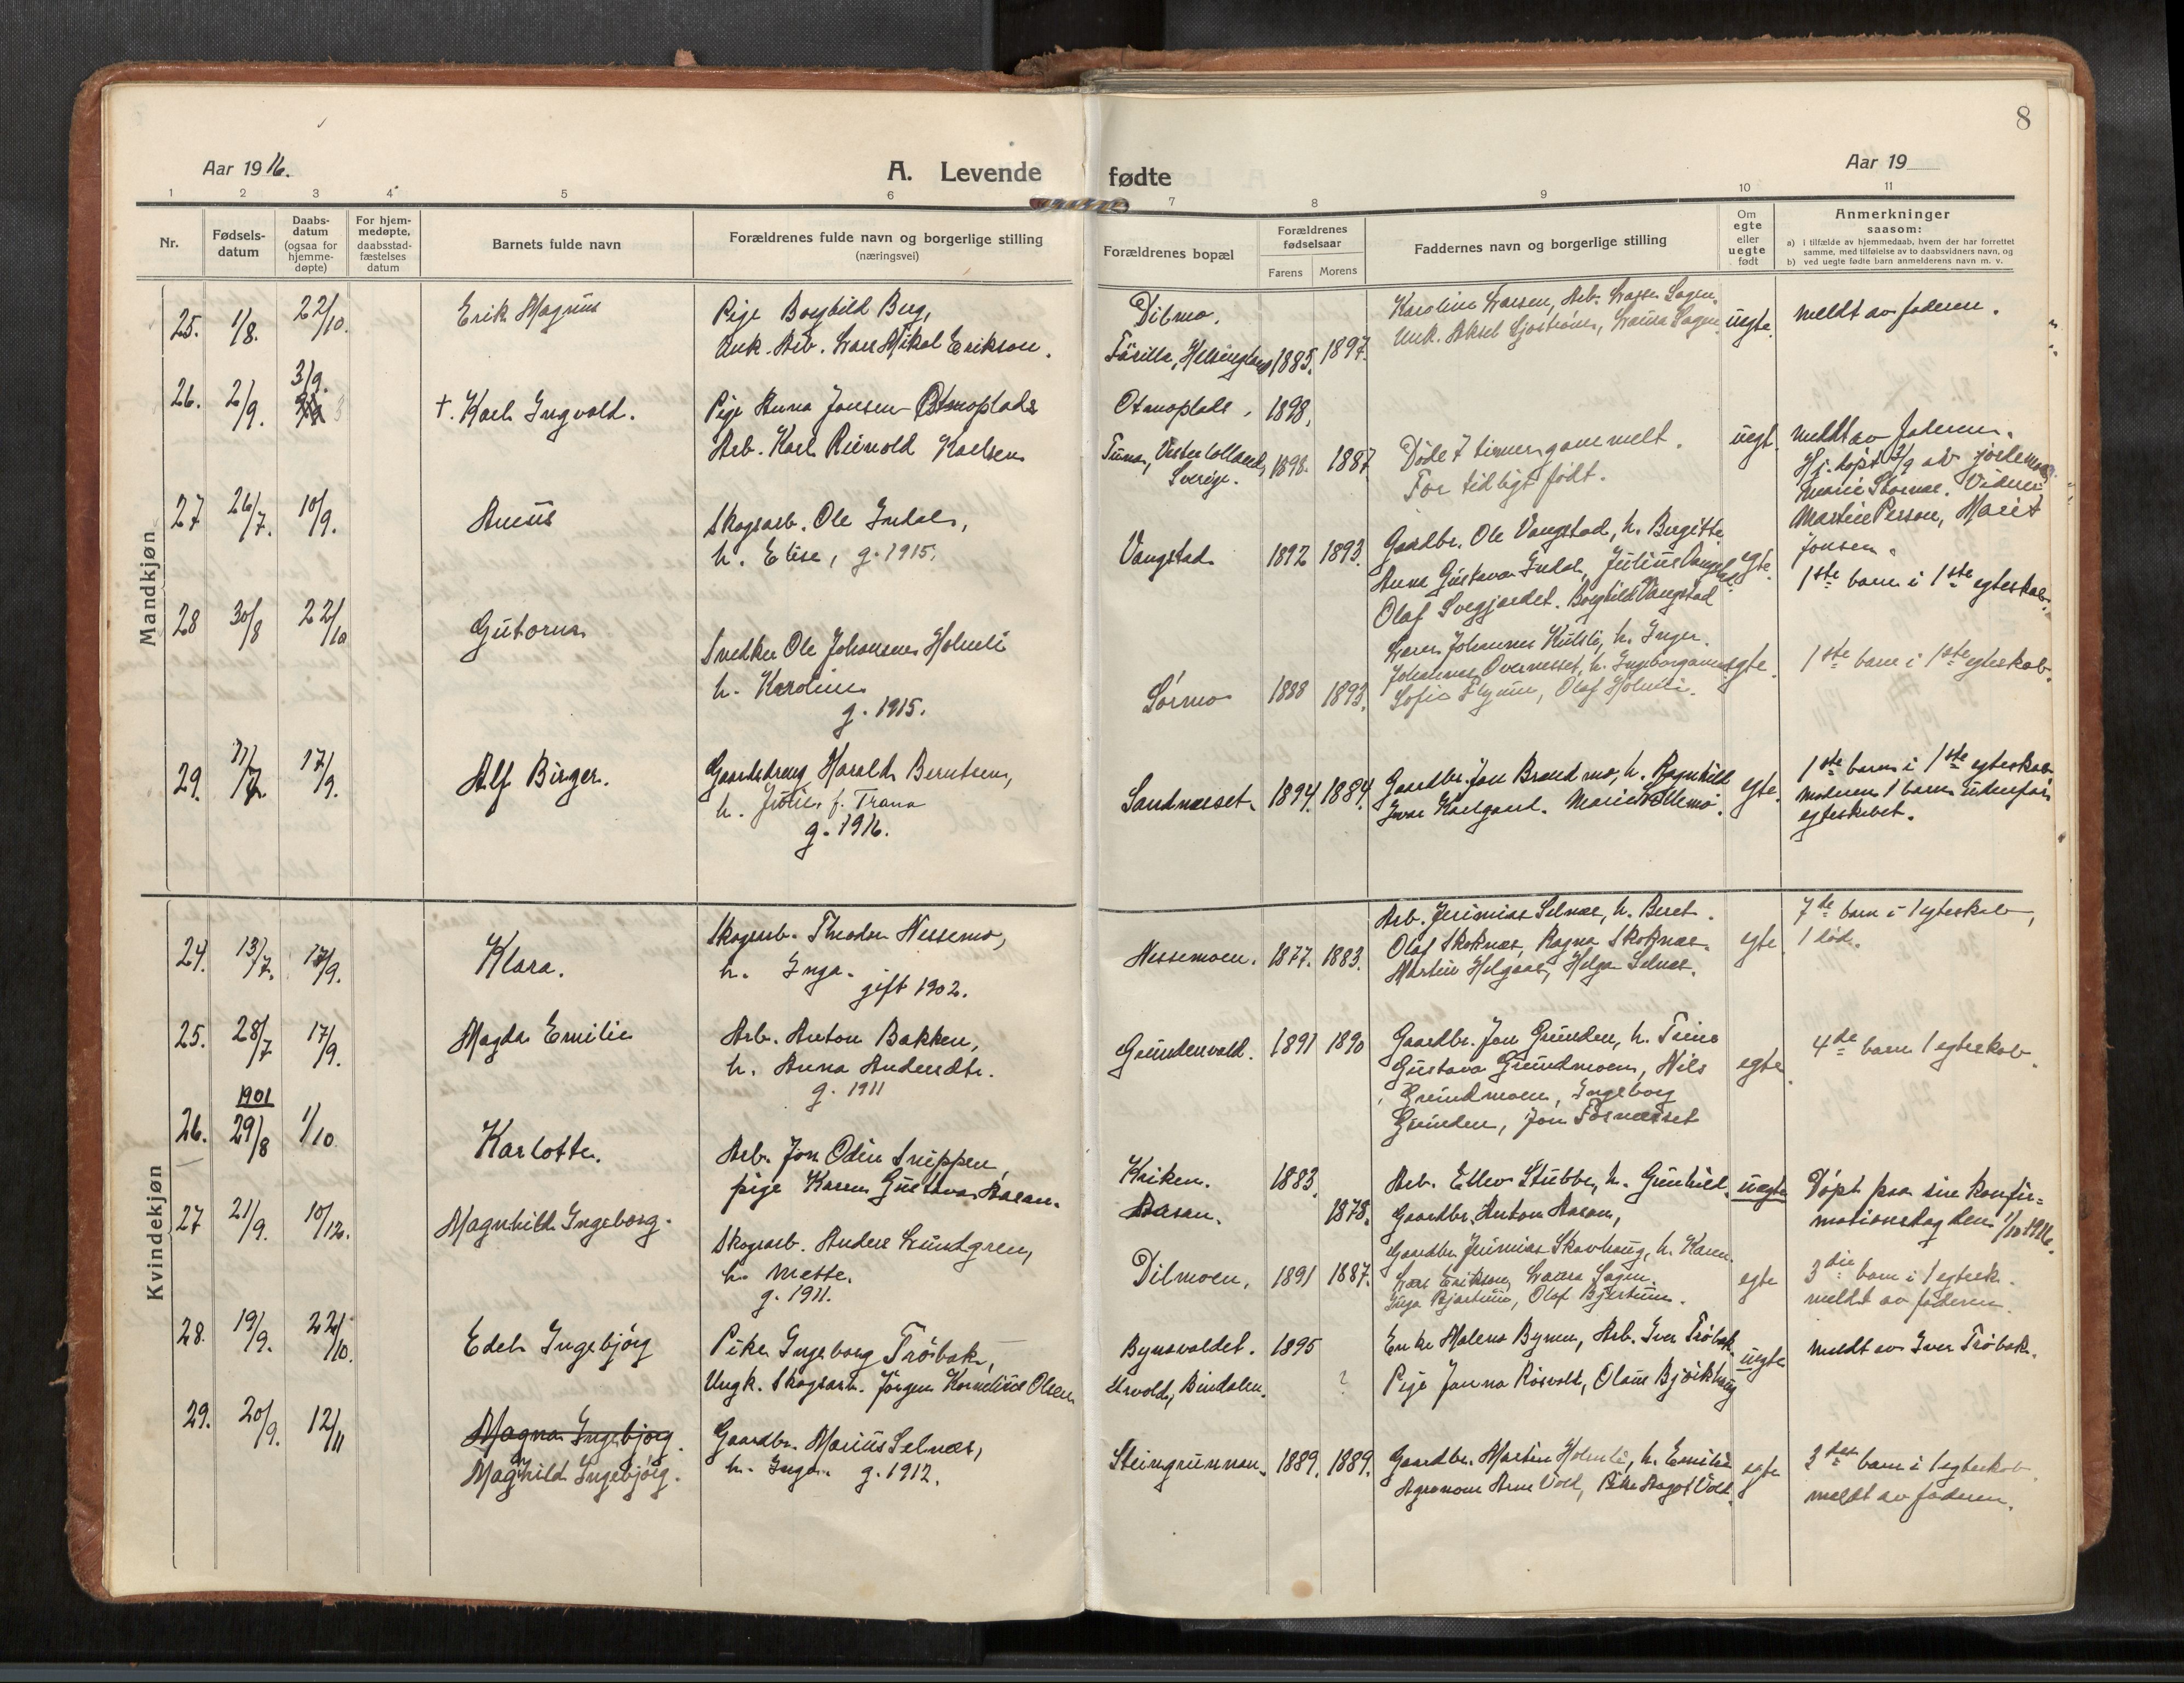 8
Aar 1916.
A. Levende fødte
Aar 19
1 2 3 4 5 6 7 8 9 10 11
Nr.
Fødsels-
datum
Daabs-
datum
(ogsaa for
hjemme-
døpte)
For hjem-
medøpte,
daabsstad-
fæstelses
datum
Barnets fulde navn
Forældrenes fulde navn og borgerlige stilling
(næringsvei)
Forældrenes bopæl
Forældrenes
fødselsaar
Farens Morens
Faddernes navn og borgerlige stilling
Om
egte
eller
uegte
født
Anmerkninger
saasom:
a) i tilfælde av hjemmedaab, hvem der har forrettet
samme, med tilføielse av to daabsvidners navn, og
b) ved uegte fødte barn anmelderens navn m. v.
Mandkjøn
25. 1/8. 22/10. Erik Magnus
Pige Borghild Berg,
Unk. Arb. Lars Mikal Erikson.
Dilmo.
Färilla, Helsingland 1885. 1897.
Karoline Larsen, Arb. Lasse Sagen.
Unk. Aksel Sjöström, Laura Sagen
uegte. meldt av faderen.
26. 2/9. 3/9. †. Karl Ingvald.
Pige Anna Jonsen Otmoplads
Arb. Karl Rienold Karlsen
Otmoplads, 1898.
Sverige. 1898. 1887
Døde 7 timer gammelt.
For tidligt født.
uegt. meldt av faderen.
Hj. døpt 3/9 av jordemor
Marie Stornæs. Vidner
Martin Person, Marit
Jonsen.
27 26/7. 10/9. Anius
Skogsarb. Ole Indal,
h. Elise, g. 1915.
Vangstad 1892 1893.
Gaardbr. Ole Vangstad, h. Bergitte
Anna Gustava Indal, Julius Vangstad
Olaf Svegjardet. Borghild Vangstad
egte.
1ste barn i 1ste egteskab.
28 30/8 22/10 Gutorm
Snedker Ole Johansen Holmli
h. Karoline
g. 1915.
Sörmo 1888 1893.
Lars Johannes Kulsli, h. Inger.
Johannes Overnesset, h. Ingeborganna
Sofie Flyum, Olaf Holmli.
egte. 1ste barn i 1ste egteskab.
29. 11/7. 17/9. Alf Birger.
Gaardsdreng Harald Berntsen,
h. Julie f. Trana
g. 1916.
Sandnæset. 1894. 1884.
Gaardbr. Jon Brandmo, h. Ragnhild
Ivar Kalgaard. Marie Sellemo.
egte.
1ste barn i 1ste egteskab
moderen 1 barn udenfor
egteskabet.
Kvindekjøn
24. 13/7. 17/9. Klara.
Skogsarb. Theodor Nessemo,
h. Inga.
gift 1902.
Nessemoen. 1877. 1883.
Arb. Jerimias Selnæs, h. Beret.
Olaf Skoknæs, Ragna Skoknæs.
Martin Helgaas, Helga Selnæs.
egte.
7de barn i 1 egteskab,
1 död.
25. 28/7 17/9. Magda Emilie
Arb. Anton Bakken,
h. Anna Andersdtr.
g. 1911
Grundenvold. 1891 1890
Gaardbr. Jon Grunden, h. Trine
Gustava Grundmoen, Nils
Grundmoen, Ingeborg
Grunden, Jon Fornæsset
egte. 4de barn 1 egteskab.
26. 1901 29/8 1/10 Karlotte.
Arb. Jon Odin Snippen,
pige Karen Gustava Aasan.
Kviken. 1883.
Aasan. 1878.
Arb. Ellev Stubbe, h. Gunhild.
Gaardbr. Anton Aasan,
uegte
Döpt paa sin konfir=
mationsdag den 1/10 1916.
27 21/9. 10/12. Magnhild Ingeborg.
Skogsarb. Anders Lundgren,
h. Mette.
g. 1911.
Dilmoen, 1891 1887.
Gaardbr. Jerimias Skavhaug, h. Karen.
Lars Erikson, Laura Sagen.
Inga Bjartun, Olaf Bjartun.
egte
3die barn i 1 egtesk.
meldt av faderen.
28. 19/9. 22/10. Edel Ingebjörg
Pike Ingeborg Tröbak,
Ungk. Skogsarb. Jörgen Kornelius Olsen
Bynavoldet. 1895
Urvold, Bindalen. ?
Enke Malena Bynen, Arb. Iver Tröbak.
Pige Janna Rösvold, Olaus Björkhaug
uegte meldt av Iver Tröbak.
29. 20/9. 12/11 Magna Ingebjörg.
Magnhild Ingebjörg.
Gaardbr. Marius Selnæs,
h. Inga. g. 1912.
Steingrunnan. 1889. 1889.
Gaardbr. Martin Holmli, h. Emilie
Agronom Arne Vold, Pike Aagot Vold.
egte
3det barn i 1 egteskab.
meldt av faderen.